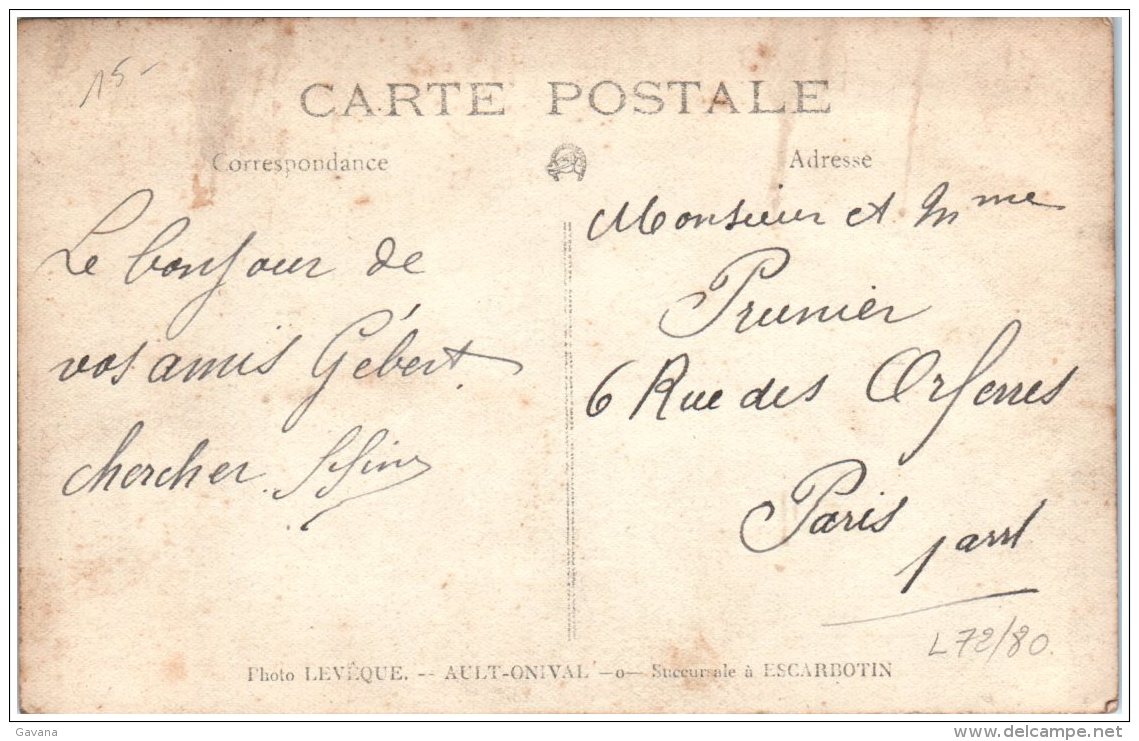 15-
CARTE POSTALE
Correspondance
Adresse
Le bonjour de
vos amis Gébert
chercher
Monsieur et Mme
Prunier
6 Rue des Orfevres
Paris
1 arrt
L72/80.
Photo LEVÊQUE. -- AULT-ONIVAL —o— Succursale à ESCARBOTIN
Gavana
www.delcampe.net